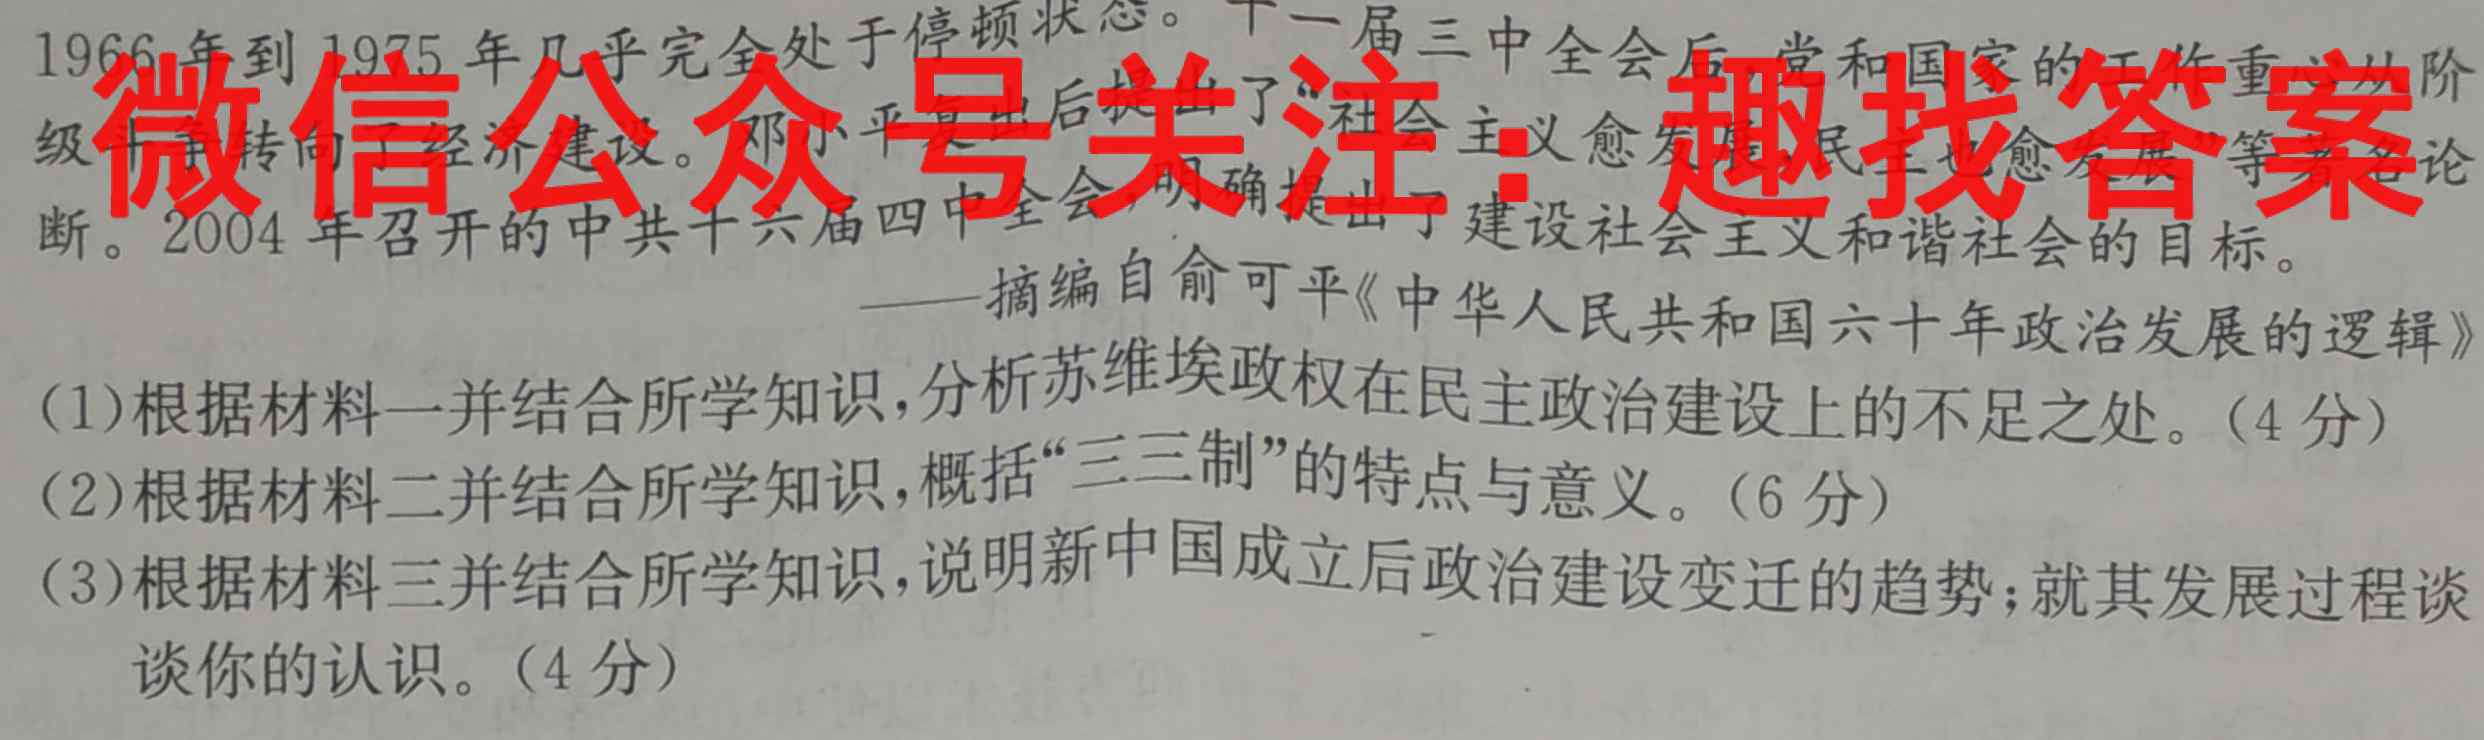 1966年到1975年几乎完全处于停顿状态。十一届三中全会后,党和国家的工作重心从阶
级斗争转向了经济建设。邓小平复出后提出了“社会主义愈发展,民主也愈发展”等著名论
断。2004年召开的中共十六届四中全会,明确提出了建设社会主义和谐社会的目标。
——摘编自俞可平《中华人民共和国六十年政治发展的逻辑》
(1)根据材料一并结合所学知识,分析苏维埃政权在民主政治建设上的不足之处。(4分)
(2)根据材料二并结合所学知识,概括“三三制”的特点与意义。(6分)
(3)根据材料三并结合所学知识,说明新中国成立后政治建设变迁的趋势;就其发展过程谈
谈你的认识。(4分)
微信公众号关注:趣找答案